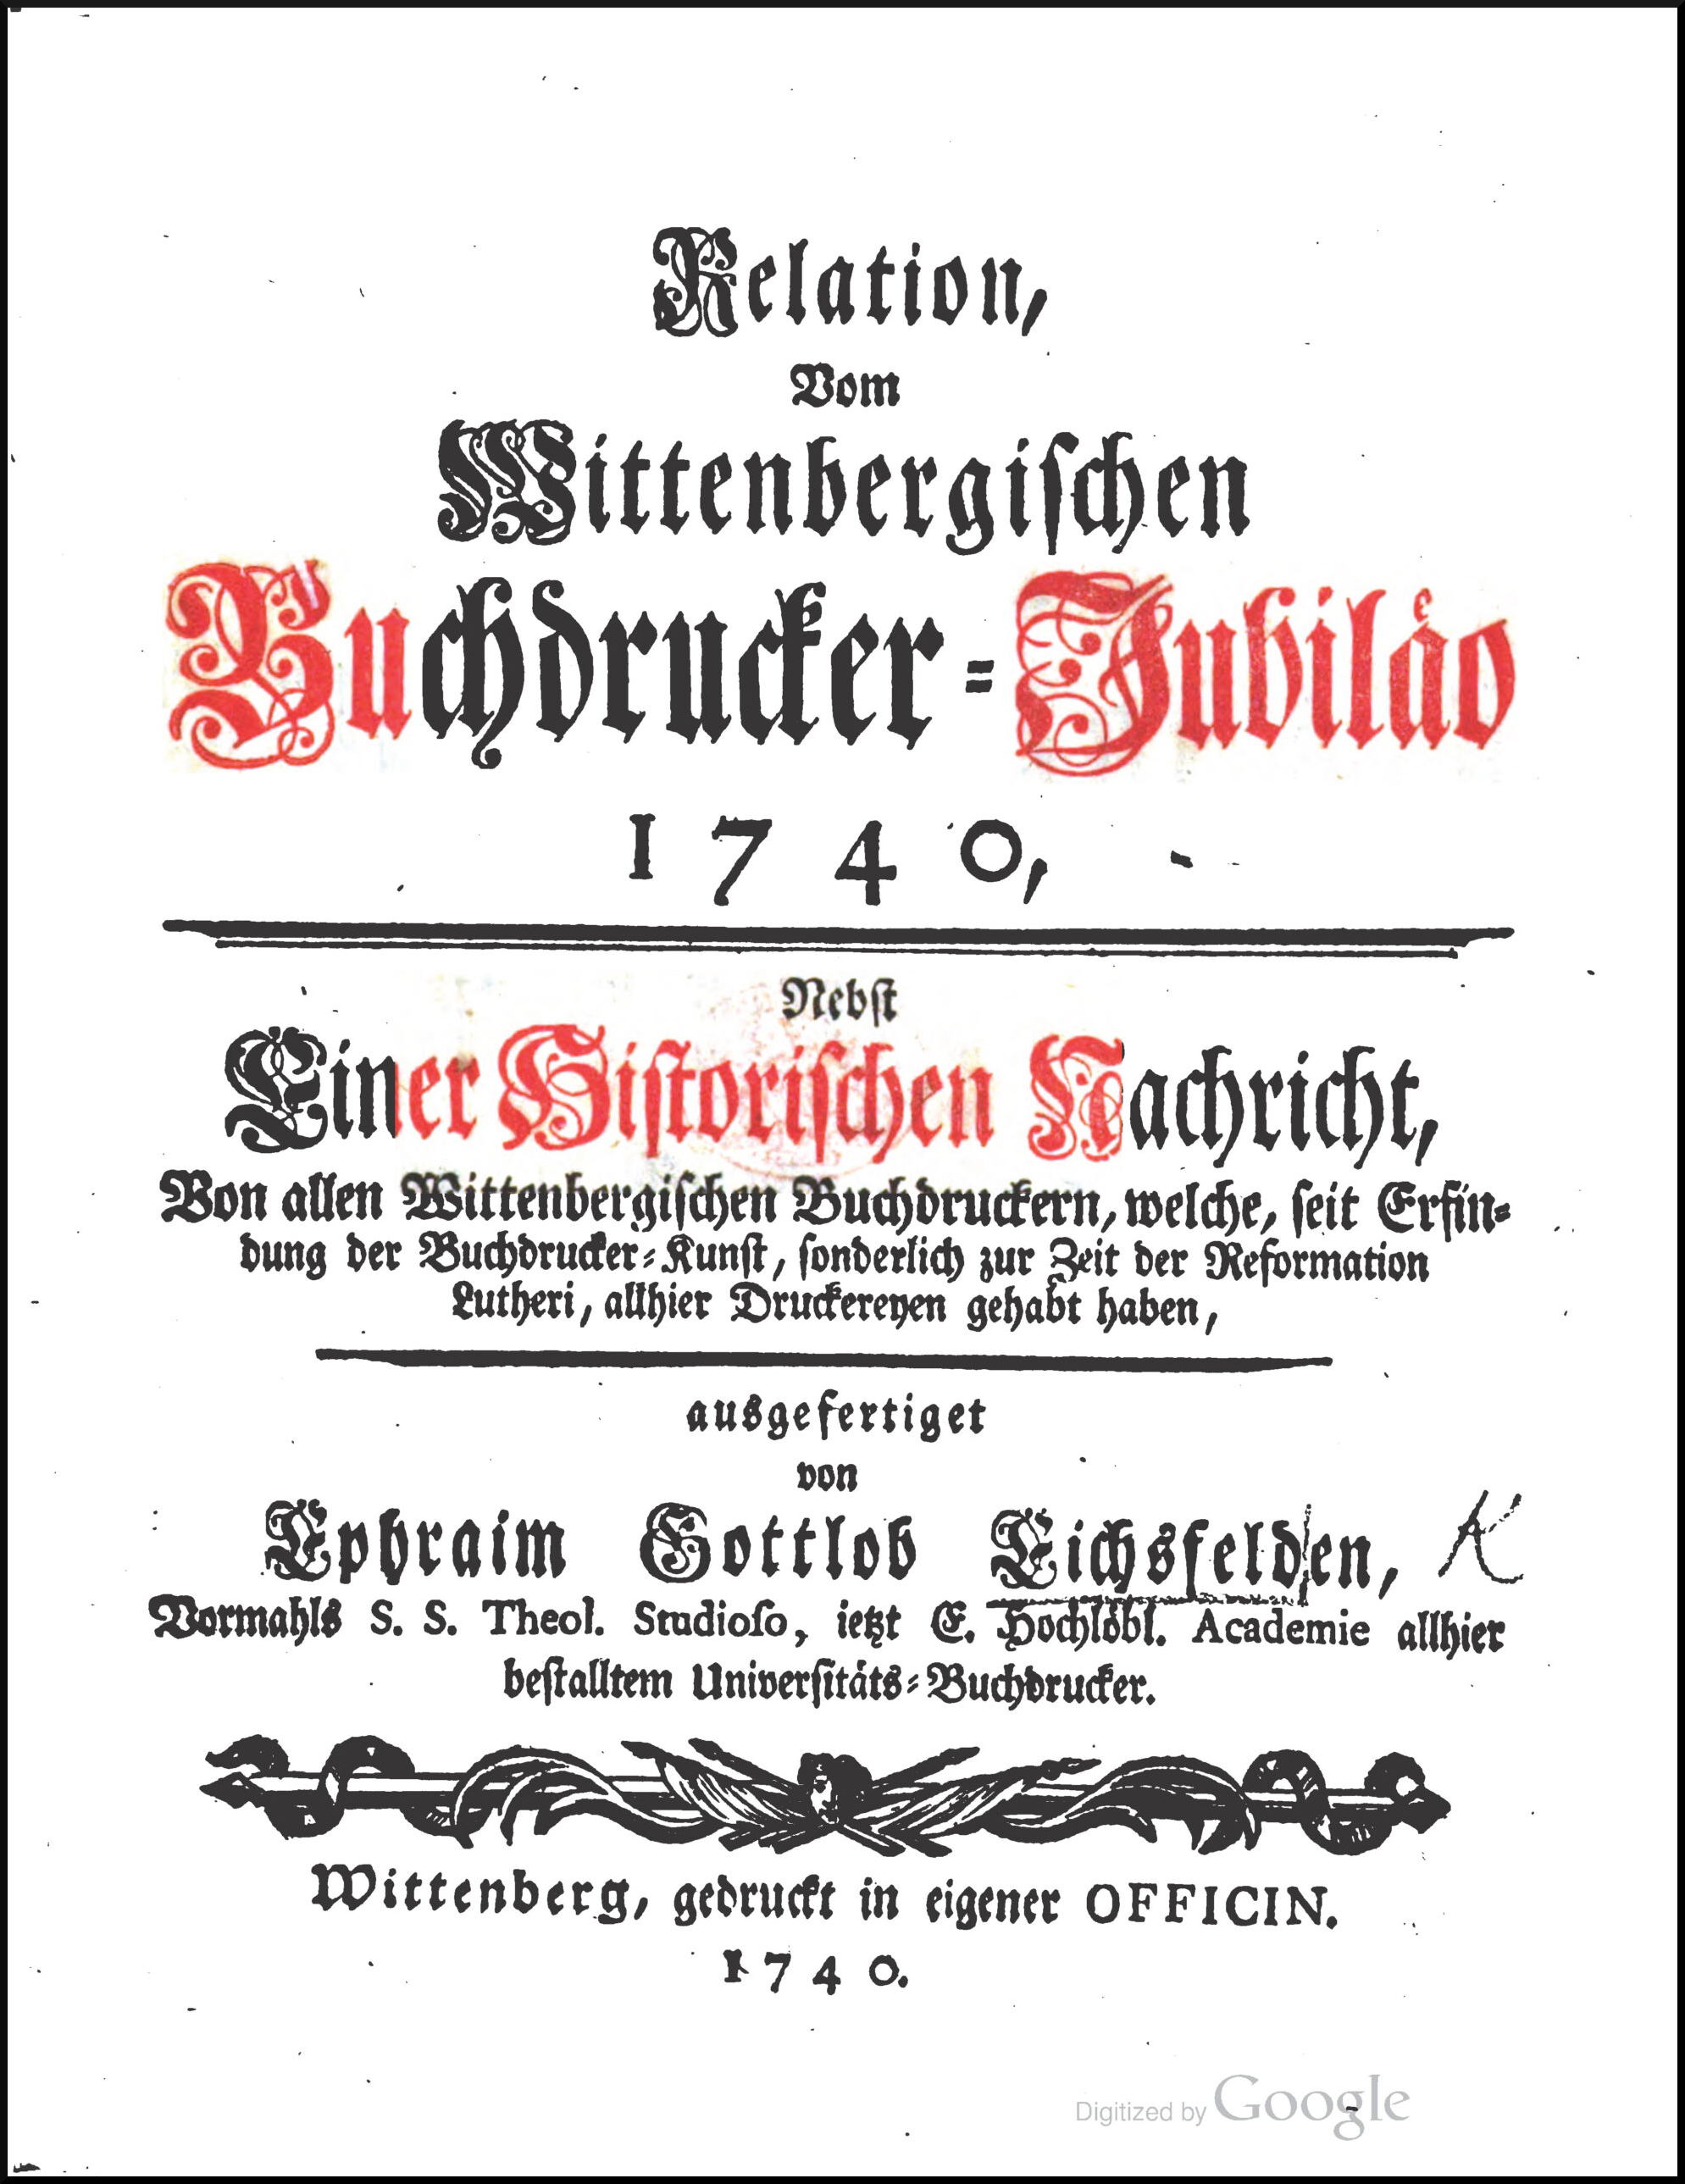 Relation,
Vom
Wittenbergiſchen
Buchdrucker-Jubilaͤo
1740,
Nebſt
Einer Hiſtoriſchen Nachricht,
Von allen Wittenbergiſchen Buchdruckern, welche, ſeit Erfin-
dung der Buchdrucker-Kunſt, ſonderlich zur Zeit der Reformation
Lutheri, allhier Druckereyen gehabt haben,
ausgefertiget
von
Ephraim Gottlob Eichsfelden, K
Vormahls S. S. Theol. Studioſo, ietzt E. Hochloͤbl. Academie allhier
beſtalltem Univerſitaͤts-Buchdrucker.
Wittenberg, gedruckt in eigener OFFICIN.
1740.
Digitized by Google